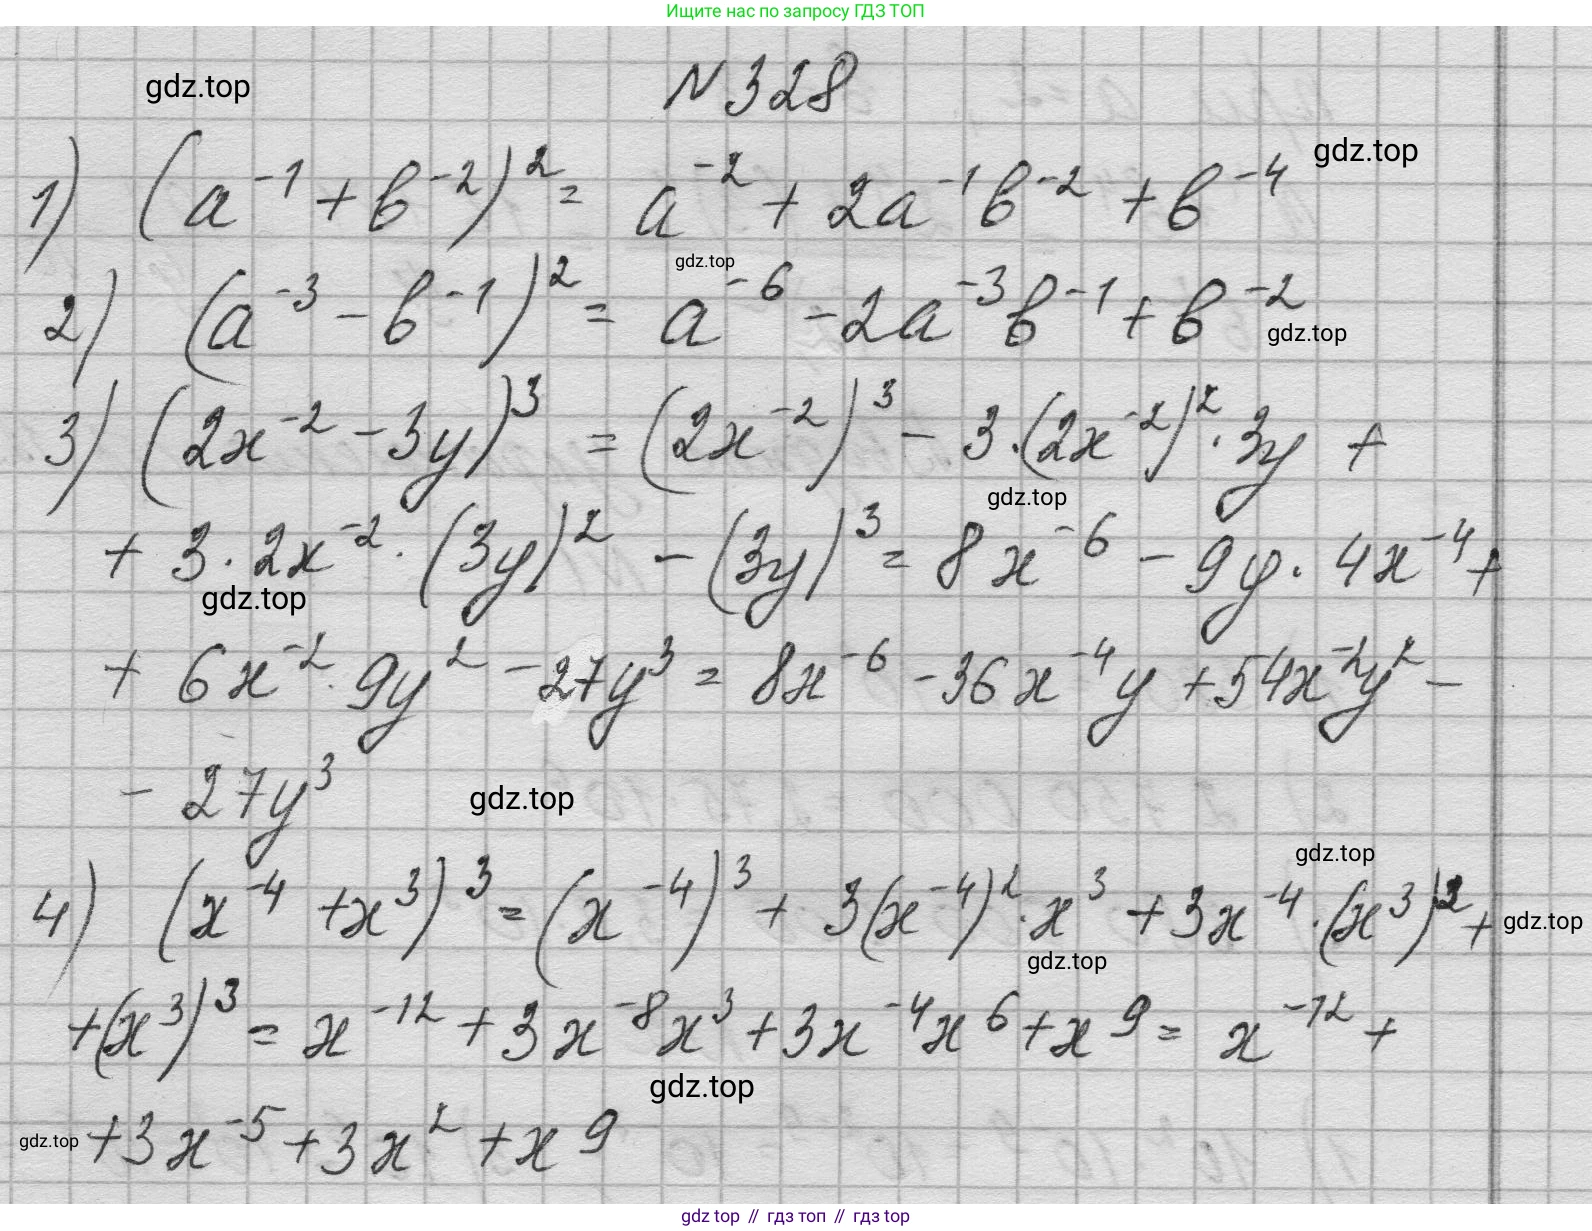 Ищите нас по запросу ГДЗ ТОП
N 328
gdz.top
1) (a⁻¹ + b⁻²)² = a⁻² + 2a⁻¹b⁻² + b⁻⁴
gdz.top
gdz.top
2) (a⁻³ - b⁻¹)² = a⁻⁶ - 2a⁻³b⁻¹ + b⁻²
gdz.top
3) (2x⁻² - 3y)³ = (2x⁻²)³ - 3·(2x⁻²)²·3y +
gdz.top
+ 3·2x⁻²·(3y)² - (3y)³ = 8x⁻⁶ - 9y·4x⁻⁴ +
gdz.top
+ 6x⁻²·9y² - 27y³ = 8x⁻⁶ - 36x⁻⁴y + 54x⁻²y² -
- 27y³
gdz.top
gdz.top
4) (x⁻⁴ + x³)³ = (x⁻⁴)³ + 3(x⁻⁴)²·x³ + 3x⁻⁴·(x³)² +
gdz.top
gdz.top
+ (x³)³ = x⁻¹² + 3x⁻⁸x³ + 3x⁻⁴x⁶ + x⁹ = x⁻¹² +
gdz.top
gdz.top
+ 3x⁻⁵ + 3x² + x⁹
gdz top // гдз топ // гдз top